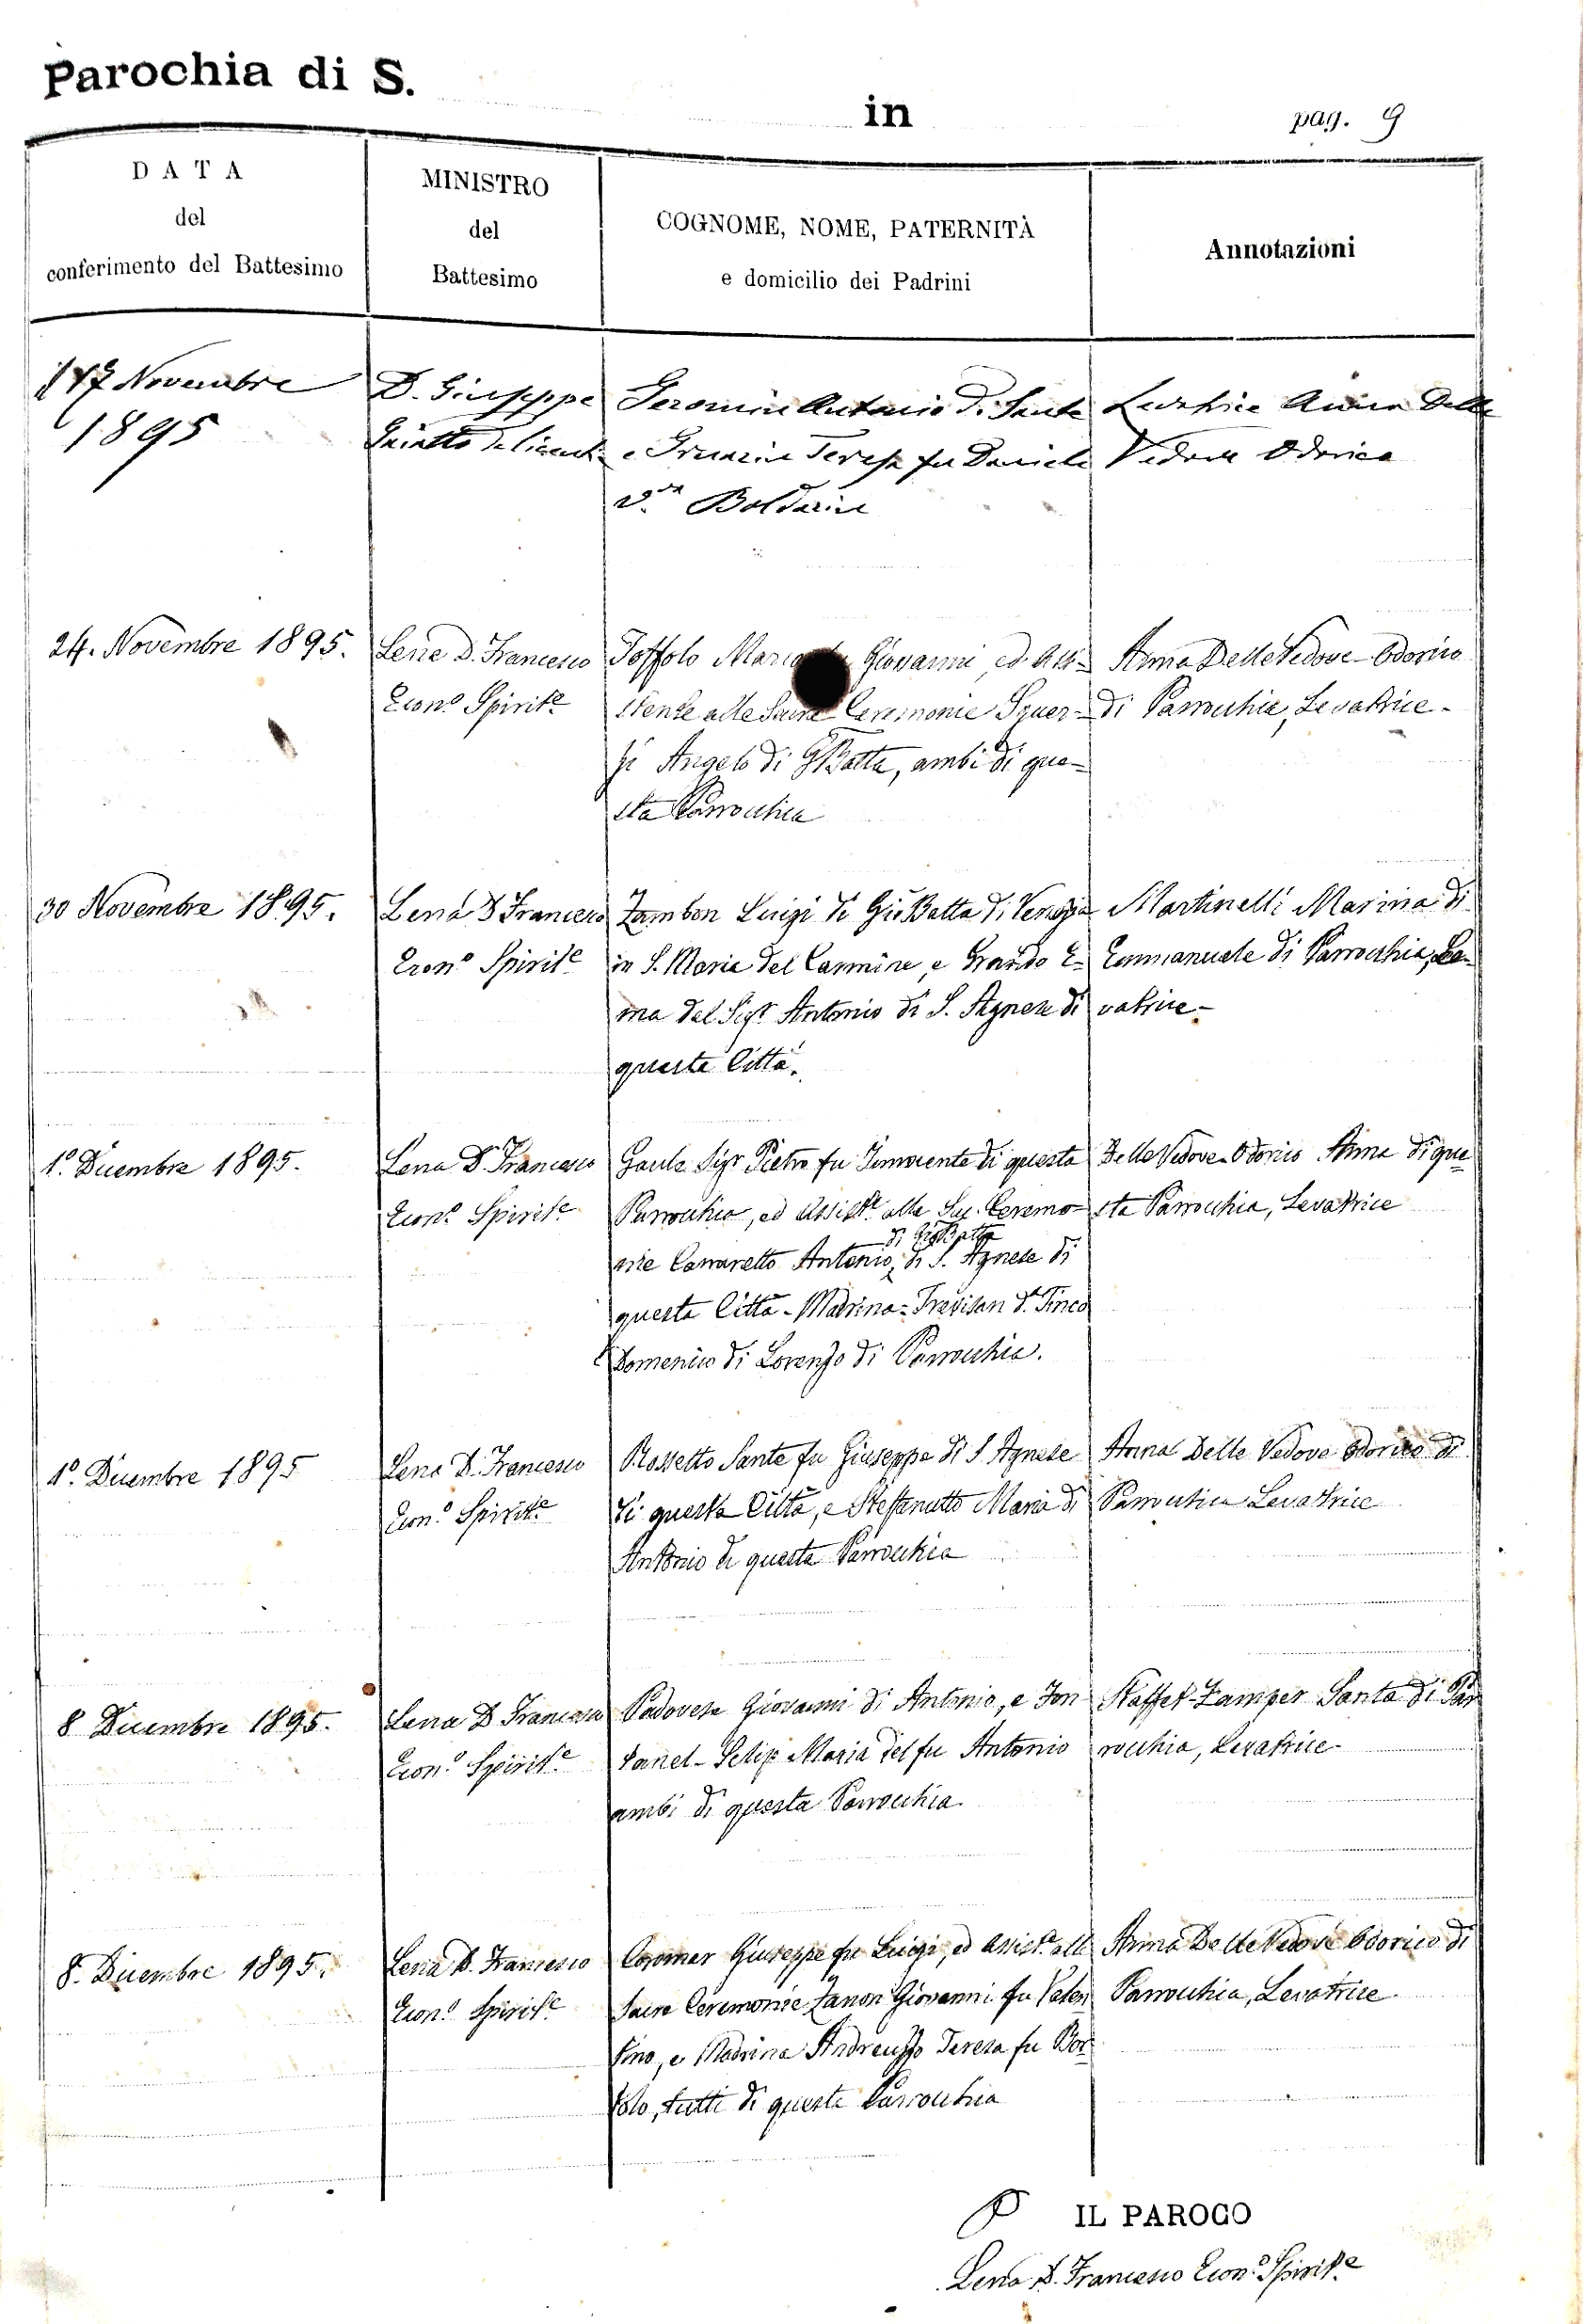 Parochia di S.
in
pag. 9
DATA
del
conferimento del Battesimo
MINISTRO
del
Battesimo
COGNOME, NOME, PATERNITÀ
e domicilio dei Padrini
Annotazioni
17 Novembre
1895
D. Giuseppe
Geromin Antonio di Sante
e Teresa fu Daniele
Vᵃ Boldarin
Levatrice Anna Delle
Vedove Odorico
24. Novembre 1895.
Lena D. Francesco
Econᵒ Spiritᵉ
Toffolo Maria Giovanni, ed Assi-
stente alle Sacre Ceremonie Squer-
si Angelo di GBatta, ambi di que-
sta Parrochia
Anna Delle Vedove-Odorico
di Parrochia, Levatrice-
30 Novembre 1895.
Lena D Francesco
Econᵒ Spiritᵉ
Zambon Luigi di GioBatta di Venezia
in S. Maria del Carmine, e Grando E-
ma del Sigʳ Antonio di S. Agnese di
questa Città.
Martinelli Marina di
Emmanuele di Parrochia, Le-
vatrice-
1º. Dicembre 1895.
Lena D. Francesco
Econᵒ Spiritᵉ
Sigʳ Pietro fu Innocente di questa
Parrochia, ed Assistᵉ alle Sac. Ceremo-
di GioBatta
nie Camaretto Antonio, di S. Agnese di
questa Città - Madrina = Trevisan dᵗᵃ
Domenica di Lorenzo di Parrochia.
Delle Vedove-Odorico Anna di que
sta Parrochia, Levatrice
1º. Dicembre 1895
Lena D. Francesco
Econ.ᵒ Spiritᵉ
Rossetto Sante fu Giuseppe di S. Agnese
di questa Città, e Stefanutto Maria di
Antonio di questa Parrochia
Anna Delle Vedove Odorico di
Parrochia Levatrice
8 Dicembre 1895.
Lena D Francesco
Econ.ᵒ Spiritᵉ
Padovese Giovanni di Antonio, e Fon
tanel- Maria del fu Antonio
ambi di questa Parrochia.
Staffet-Zamper Santa di Par
rochia, Levatrice
8. Dicembre 1895.
Lena D. Francesco
Econ.ᵒ Spiritᵉ
Coromer Giuseppe fu Luigi, ed Assistᵉ alle
Sacre Ceremonie Zanon Giovanni fu Valen
tino, e Madrina Andreuzzo Teresa fu Bor
tolo, tutti di questa Parrochia
Anna Delle Vedove Odorico di
Parrochia, Levatrice.
IL PAROCO
Lena D. Francesco Econ.ᵒ Spiritᵉ